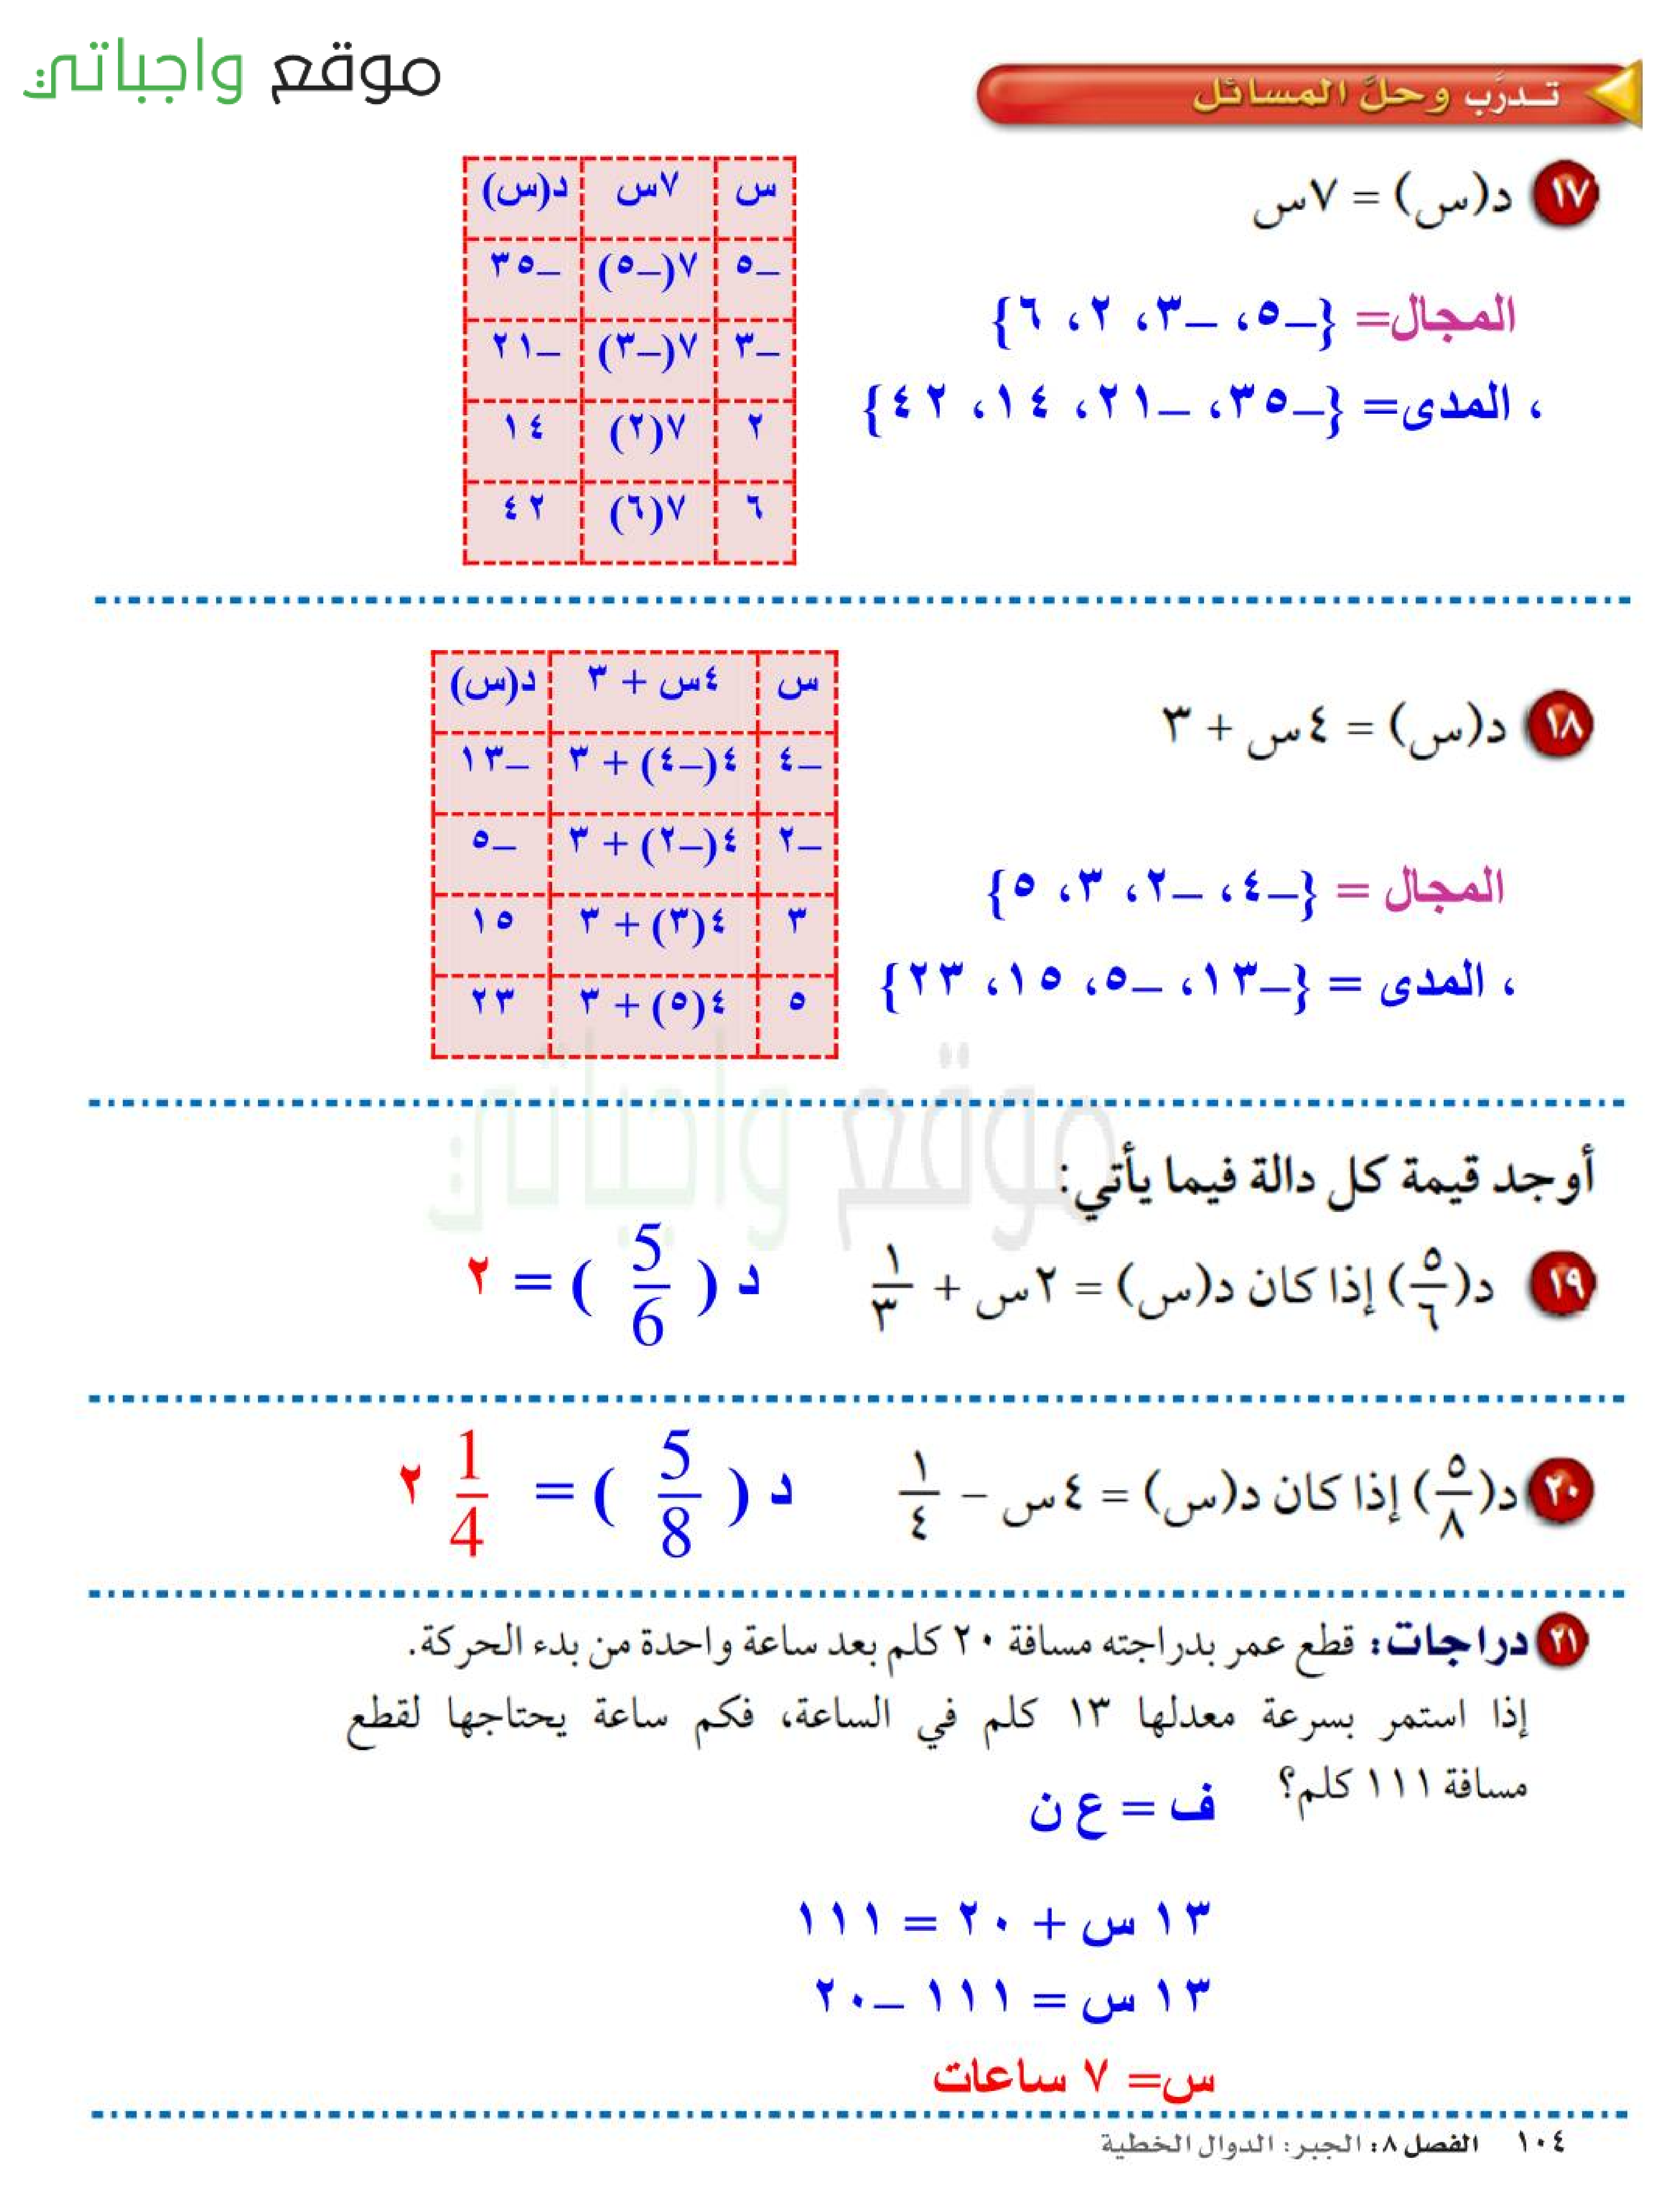 موقع واجباتي
تـدرَّب وحلَّ المسائل
١٧ د(س) = ٧س
س ٧س د(س)
–٥ ٧(–٥) –٣٥
–٣ ٧(–٣) –٢١
٢ ٧(٢) ١٤
٦ ٧(٦) ٤٢
المجال= {–٥، –٣، ٢، ٦}
، المدى= {–٣٥، –٢١، ١٤، ٤٢}
١٨ د(س) = ٤س + ٣
س ٤س + ٣ د(س)
–٤ ٤(–٤) + ٣ –١٣
–٢ ٤(–٢) + ٣ –٥
٣ ٤(٣) + ٣ ١٥
٥ ٤(٥) + ٣ ٢٣
المجال = {–٤، –٢، ٣، ٥}
، المدى = {–١٣، –٥، ١٥، ٢٣}
موقع واجباتي
أوجد قيمة كل دالة فيما يأتي:
١٩ د(٥/٦) إذا كان د(س) = ٢س + ١/٣ د ( 5/6 ) = ٢
٢٠ د(٥/٨) إذا كان د(س) = ٤س – ١/٤ د ( 5/8 ) = 1/4 ٢
٢١ دراجات: قطع عمر بدراجته مسافة ٢٠ كلم بعد ساعة واحدة من بدء الحركة.
إذا استمر بسرعة معدلها ١٣ كلم في الساعة، فكم ساعة يحتاجها لقطع
مسافة ١١١ كلم؟
ف = ع ن
١٣ س + ٢٠ = ١١١
١٣ س = ١١١ –٢٠
س= ٧ ساعات
١٠٤ الفصل ٨: الجبر: الدوال الخطية